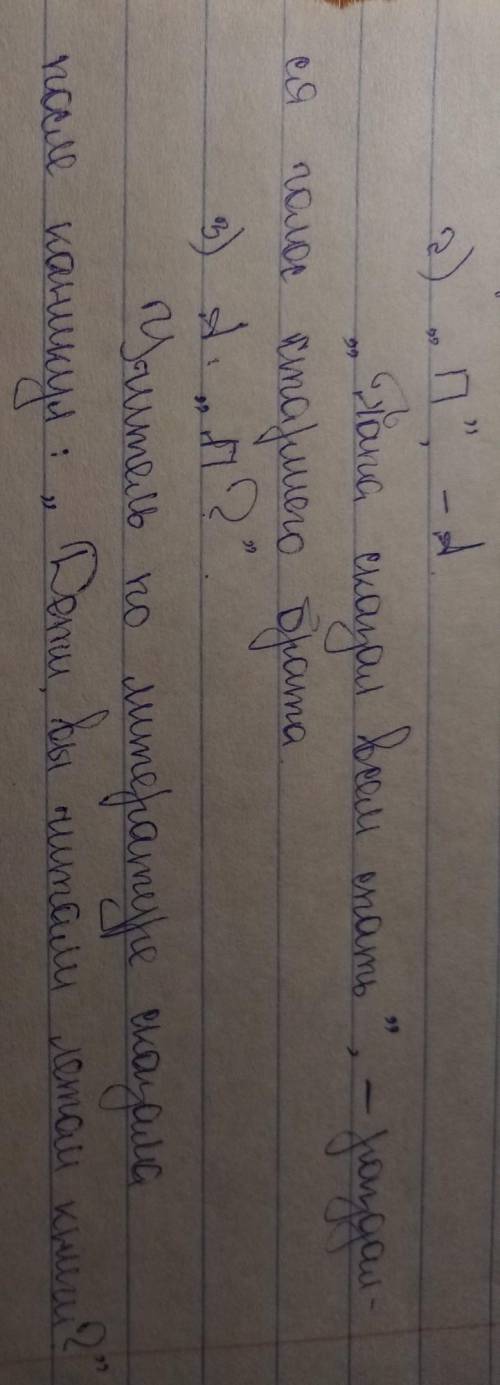 2) „П", – А.
„Папа сказал всем спать", – раздал-
ся голос старшего брата.
3) А: „П?".
Учитель по литературе сказала
после каникул: „Дети, вы читали летом книги?"